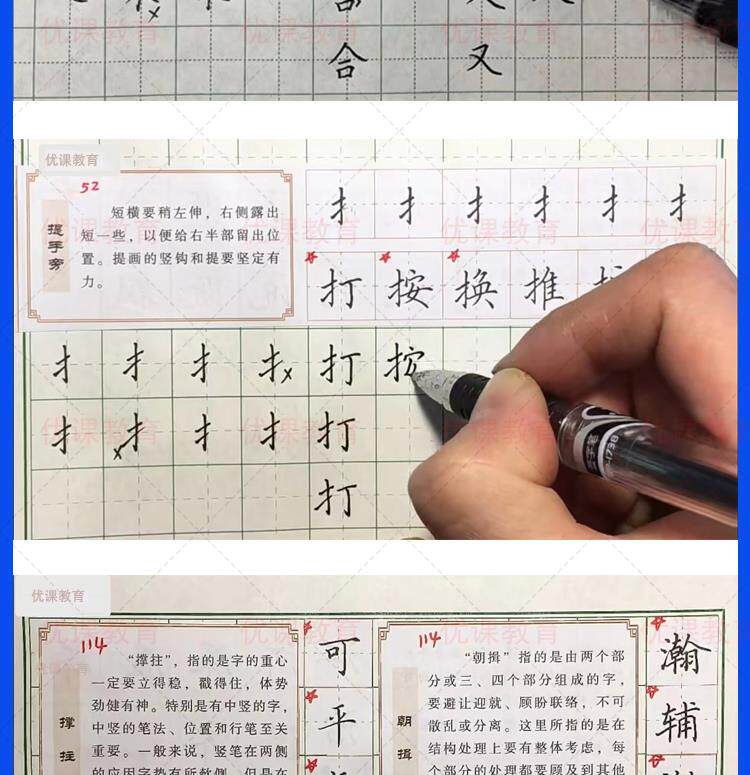 合
又
优课教育
52
提手旁
短横要稍左伸，右侧露出
短一些，以便给右半部留出位
置。提画的竖钩和提要坚定有
力。
扌 扌 扌 扌 扌 扌
打 按 换 推
扌 扌 扌 扌x 打 按
扌 x扌 扌 扌 打
打
优课教育
114
撑拄
“撑拄”，指的是字的重心
一定要立得稳，戳得住，体势
劲健有神。特别是有中竖的字，
中竖的笔法、位置和行笔至关
重要。一般来说，竖笔在两侧
可
平
114
朝揖
“朝揖”指的是由两个部
分或三、四个部分组成的字，
要避让迎就、顾盼联络，不可
散乱或分离。这里所指的是在
结构处理上要有整体考虑，每
个部分的处理都要顾及到其他
瀚
辅